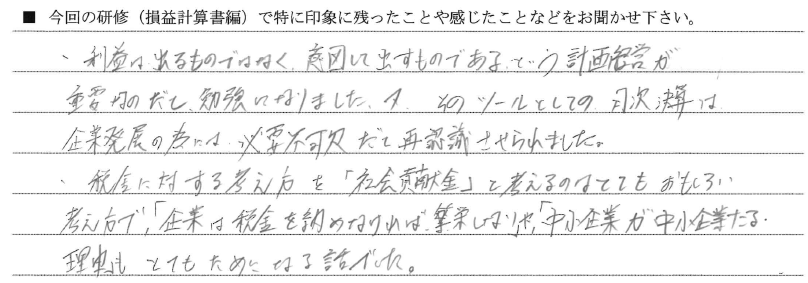 ■ 今回の研修（損益計算書編）で特に印象に残ったことや感じたことなどをお聞かせ下さい。
・利益は出るものではなく、意図して出すものである、という計画経営が
重要なのだと勉強になりました。又、そのツールとしての月次決算は
企業発展の為には必要不可欠だと再認識させられました。
・税金に対する考え方を「社会貢献金」と考えるのはとてもおもしろい
考え方で、「企業は税金を納めなければ繁栄しない」や、「中小企業が中小企業たる
理由」もとてもためになる話でした。